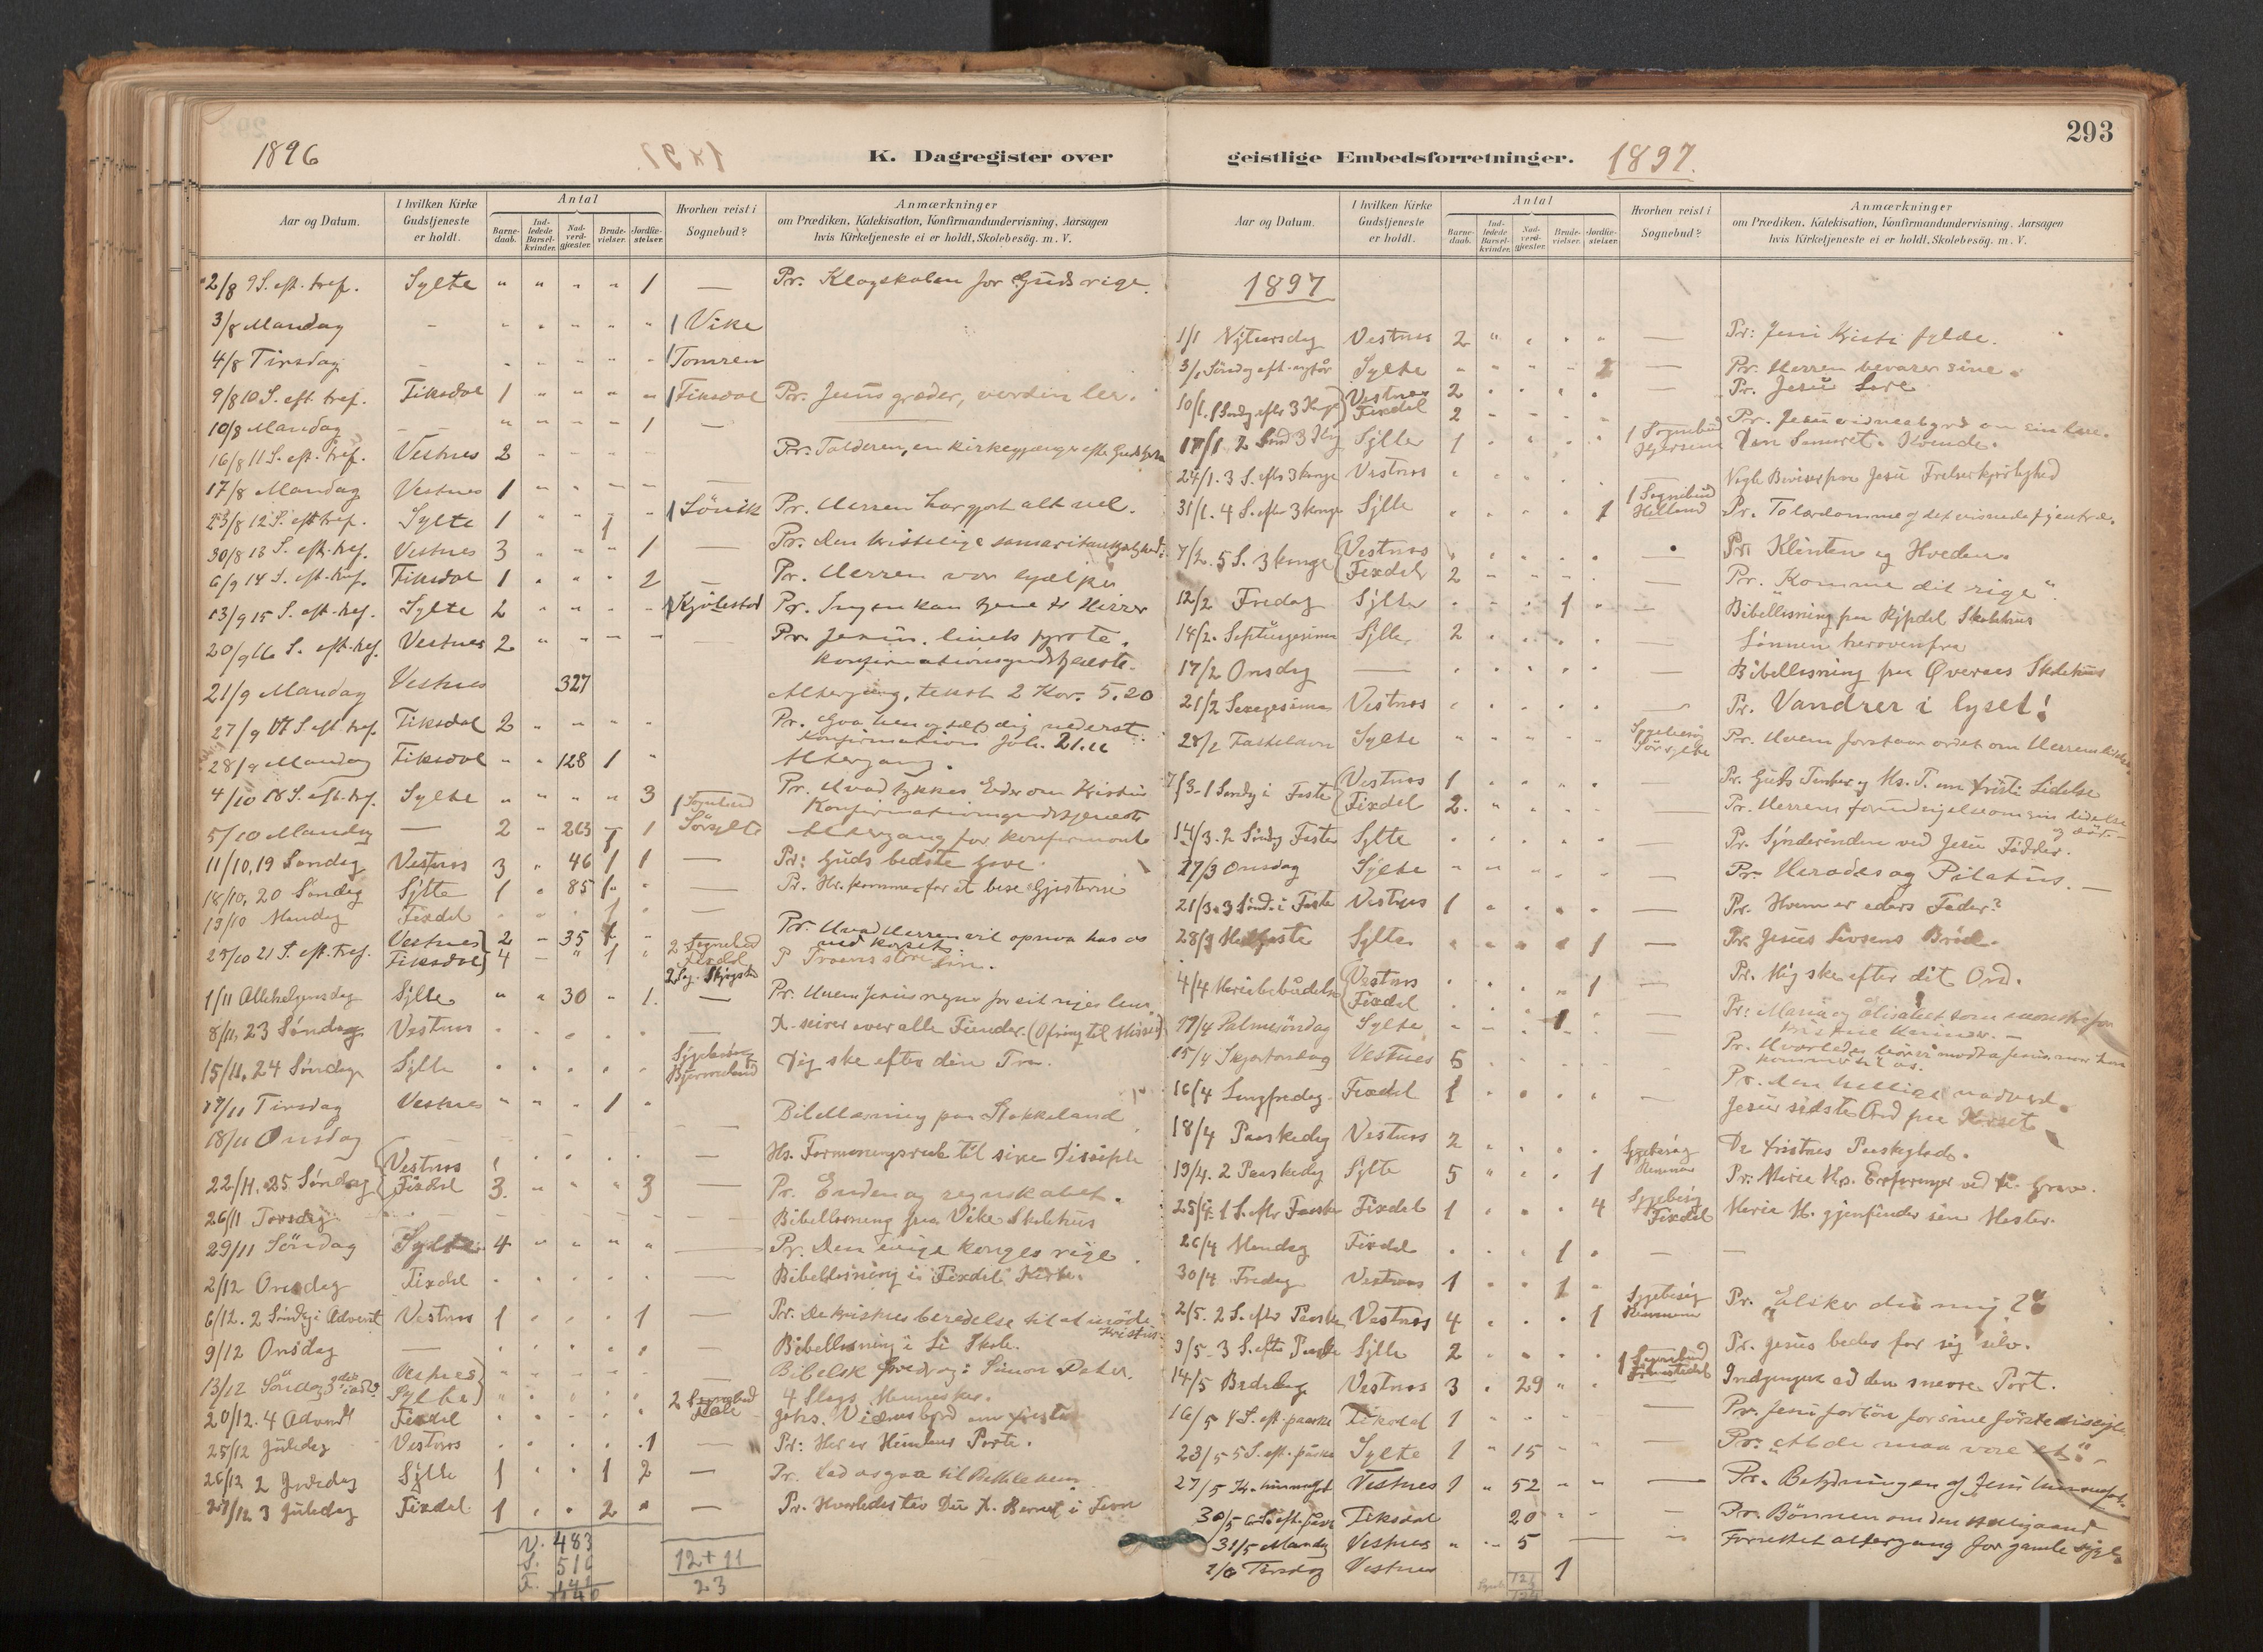 293
1896
K. Dagregister over
geistlige Embedsforretninger.
1897.
Aar og Datum.
I hvilken Kirke Gudstjeneste er holdt.
Antal
Barne-daab.
Ind-ledede Barsel-kvinder.
Nad-verd-gjester.
Brude-vielser.
Jordfæ-stelser.
Hvorhen reist i Sognebud?
Anmærkninger
om Prædiken, Katekisation, Konfirmandundervisning, Aarsagen
hvis Kirketjeneste ei er holdt, Skolebesög. m. V.
2/8 9 S. eft. tref. Sylte " " " " 1 — Pr. Klogskaben for Guds rige.
3/8 Mandag - - " " " " 1 Vike
4/8 Tirsdag - 1 Tomren
9/8 10 S. eft. tref. Fiksdal 1 " " " " 1 Fiksdal Pr. Jesus græder, verden ler.
10/8 Mandag - - " " " " 1 —
16/8 11 S. eft. tref. Vestnes 2 Pr. Tolderen, en kirkegjænger efter Guds
17/8 Mandag Vestnes 1 " " " "
23/8 12 S. eft. tref. Sylte 1 " " 1 1 Sörvik Pr. Herren har gjort alt vel.
30/8 13 S. eft. tref. Vestnes 3 " " " 1 — Pr. Den kristelige
6/9 14 S. eft. tref. Fiksdal 1 " " " 2 — Pr. Herren vor hjælper
13/9 15 S. eft. tref. Sylte 2 Pr. Ingen kan tjene to Herrer
20/9 16 S. eft. tref. Vestnes 2 Pr. Jesus, livets fyrste.
Konfirmationsgudstjeneste.
21/9 Mandag Vestnes 327 Altergang, tekst 2 Kor. 5.20
27/9 17 S. eft. tref. Fiksdal 2 " " " Pr. Gaa hen og sæt dig nederst.
Konfirmation Joh. 21.
28/9 Mandag Fiksdal " " 128 1 " Altergang.
4/10 18 S. eft. tref. Sylte " " " " 3 Pr. Hvad tykkes Eder om Kristus
Konfirmationsgudstjeneste
5/10 Mandag — 2 " 263 — 1 1 Sognebud Sörsylte Altergang for konfirmant
11/10, 19 Söndag Vestnes 3 " 46 1 1 — Pr: Guds bedste Gave.
18/10, 20 Söndag Sylte 1 " 85 1 " — Pr. Hr. kommer for at bese Gjesterne
19/10 Mandag Fixdal " " " 1 " —
25/10 21 S. eft. tref. Vestnes 2 " 35 Pr. Hvad Herren vil opnaa hos os
ved korset.
Fiksdal 4 — " 1 " 2 Sognebud Fixdal P Troens store
1/11 Allehelgensdag Sylte " " 30 " 1. —
8/11, 23 Söndag Vestnes — K. seirer over alle Fiender. (Ofring til Mission)
15/11, 24 Söndag Sylte Sygebesög Dig ske efter din Tro.
17/11 Tirsdag Vestnes " " " 1 "
18/11 Onsdag Bibellæsning paa Stokkeland
22/11, 25 Söndag Vestnes Hs. Formaningsord til sine Disciple
Fixdal 3. " " " 3 — Pr. Enden og regnskabet.
26/11 Torsdag Bibellæsning paa Vike Skolehus
29/11 Söndag Sylte 4 " " " " — Pr. Den evige konges rige.
2/12 Onsdag Fixdal Bibellæsning i Fixdal Kirke.
6/12. 2 Söndag i Advent Vestnes 1 1 — Pr. De kristnes beredelse til at möde
Kristus.
9/12 Onsdag — Bibellæsning i Li Skole.
Bibelsk foredrag: Simon Peter.
13/12 Söndag 3die i adv. Vestnes
Sylte 4 Slags Mennesker.
20/12. 4 Advent Fixdal 2 Sognebud Johs. Vidnesbyrd om Kristus
25/12 Juledag Vestnes 1 — Pr: Her er Himlens Porte.
26/12 2 Juledag Sylte 1 " " 1 2 — Pr. Lad os gaa til Bethlehem
27/12 3 Juledag Fixdal 1 " " 2 " —
V. 483
S. 516
F. 141
12 + 11
23
Aar og Datum.
I hvilken Kirke Gudstjeneste er holdt.
Antal
Barne-daab.
Ind-ledede Barsel-kvinder.
Nad-verd-gjester.
Brude-vielser.
Jordfæ-stelser.
Hvorhen reist i Sognebud?
Anmærkninger
om Prædiken, Katekisation, Konfirmandundervisning, Aarsagen
hvis Kirketjeneste ei er holdt, Skolebesög. m. V.
1897
1/1 Nytaarsdag Vestnes 2 — Pr: Jesu Kristi fylde.
3/1 Söndag eft. nytår Sylte 2 — Pr. Herren bevarer sine.
10/1. 1 Söndag efter 3 Konge Vestnes 2 — Pr. Jesu Lære
Fixdal 2 Pr. Jesu vidnesbyrd om sin lære.
17/1 2 Sönd 3 Kg Sylte 1 1 Sognebud Den Samarit. Kvinde.
24/1. 3 S. efter 3 konge Vestnes Nogle Beviser paa Jesu Frelserkjærlighed
31/1. 4 S. efter 3 konge Sylte 1 1 Sognebud Helland Pr. To lærdomme af det visnede figentræ.
7/2. 5 S. 3 konge Vestnes Pr. Klinten og Hveden
Fixdal 2 — Pr. "Komme dit rige".
12/2 Fredag Sylte 1 Bibellæsning paa Skolehus
14/2. Septuagesima Sylte 2 Sönnen herovenfra
17/2 Onsdag — Bibellæsning paa Øveraas Skolehus
21/2 Sexagesima Vestnes Pr. Vandrer i lyset!
28/2 Fastelavn Sylte Sygebesög Sörsylte Pr. Hvem forstaar ordet om Herrens lidelse
7/3 - 1 Söndag i Faste Vestnes 1 Pr. Guds Tanker og Ms. T. om Kristi Lidelse
Fixdal 2. Pr. Herrens forudsigelse om sin lidelse
og död —
14/3. 2 Söndag Faste Sylte Pr. Synderinden ved Jesu Födder.
17/3 Onsdag Sylte Pr. Herodes og Pilatus. —
21/3. 3 Sönd. i Faste Vestnes 1 — Pr. Hvem er eders Fader?
28/3 Midfaste Sylte 1 — Pr. Jesus Livsens Bröd.
4/4 Mariæ bebudelse Vestnes 1 Pr. Mig ske efter dit Ord.
Fixdal Pr: Maria og Elisabet som mönstre for
kristne kvinder. —
11/4 Palmesöndag Sylte 1 Pr. Hvorledes bör vi modta Jesus, naar han
kommer til os.
15/4 Skjærtorsdag Vestnes 5 Pr. Den hellige nadverd.
16/4 Langfredag Fixdal 1 Jesu sidste Ord paa Korset
18/4 Paaskedag Vestnes 2 De Kristnes Paaskeglæde.
19/4. 2 Paaskedag Sylte 5 1 Sygebesög Pr: Marie Ms. Erfaringer ved Grav.
25/4. 1 S. eftr Paaske Fixdal 1 4 Sygebesög Fixdal Marie M. gjenfinder sin Mester.
26/4 Mandag Fixdal 1 — —
30/4 Fredag Vestnes 1 1
2/5. 2 S. eftr Paaske Vestnes 4 1 Sygebesög Pr. "Elsker du mig?"
9/5 - 3 S. eftr Paaske Sylte 2 Pr. Jesus beder for sig selv.
14/5 Bededag Vestnes 3 29 1 Sognebud Indgangen ad den snevre Port.
16/5 4 S. eft. paaske Fiksdal 1 Pr. Jesu forbön for sine förste disciple
23/5 5 S. eft. paaske Sylte 1 " 15 Pr. "At de maa være et". —
27/5 Kr. himmelf. Vestnes 1 " 52 " " — Pr. Betydningen af Jesu himmelfart
30/5 6 S. eft. paaske Fiksdal 20 Pr. Bönnen om den Helligaand
31/5 Mandag Vestnes " 5 — Forrettet altergang for gamle syge
1/6 Tirsdag Vestnes 1